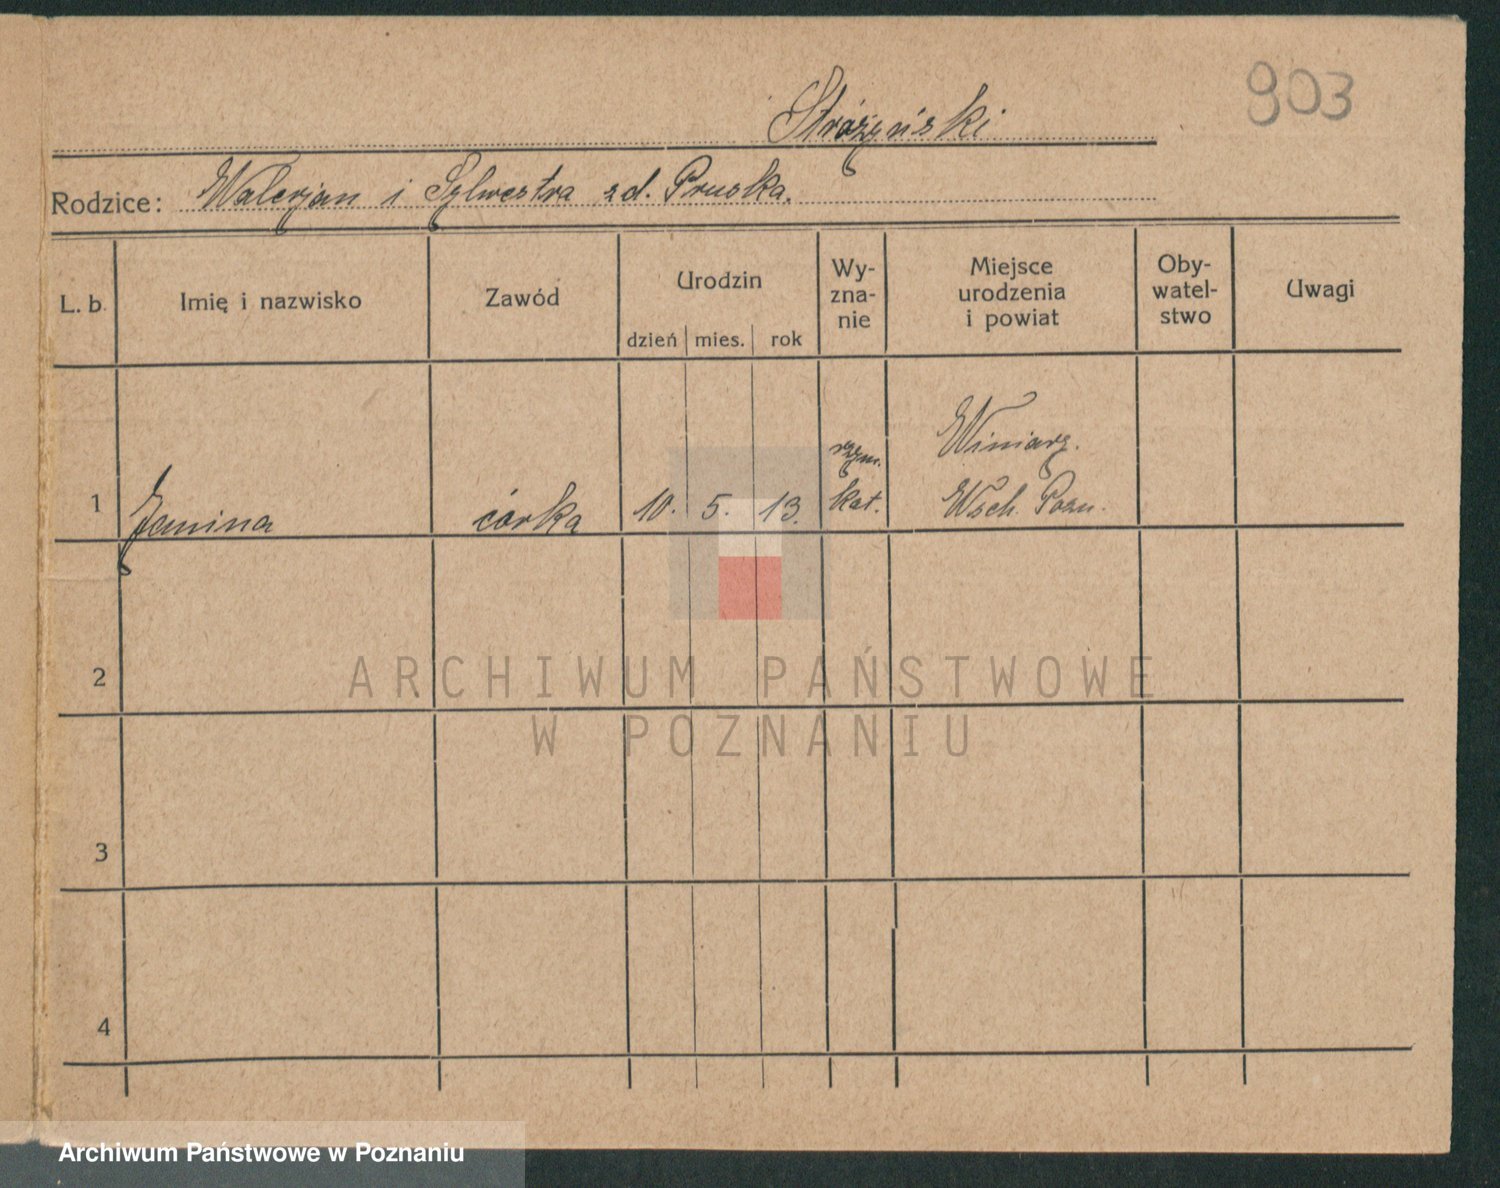 903
Stróżyński
Rodzice: Walerjan i Sylwestra zd. Pruska.
L. b. Imię i nazwisko Zawód Urodzin dzień mies. rok Wy-zna-nie Miejsce urodzenia i powiat Oby-watel-stwo Uwagi
rzym. Winiarg.
1 Janina córka 10. 5. 13. kat. Wsch. Pozn.
2
ARCHIWUM PAŃSTWOWE
W POZNANIU
3
4
Archiwum Państwowe w Poznaniu